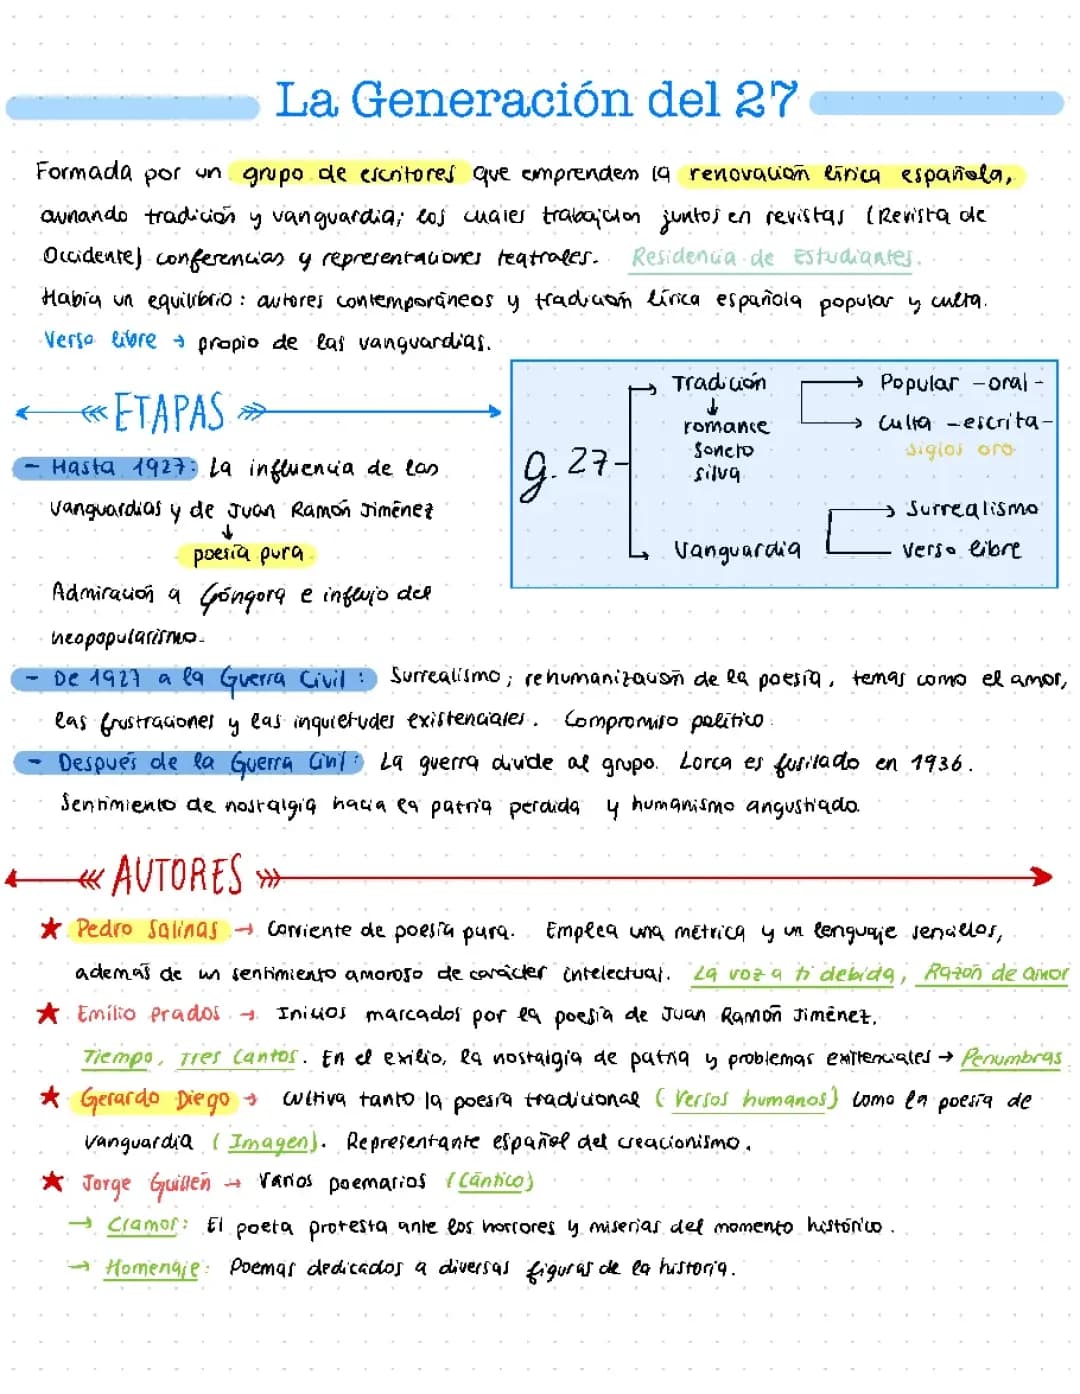 La Generación del 27
Formada por un grupo de escritores que emprenden la renovación lírica española,
aunando tradición y vanguardia; los cuales trabajaron juntos en revistas (Revista de
Occidente) conferencias y representaciones teatrales. Residencia de Estudiantes.
Había un equilibrio: autores contemporáneos y tradición lírica española popular y culta.
Verso libre → propio de las vanguardias.
ETAPAS
- Hasta 1927: La influencia de las
vanguardias y de Juan Ramón Jiménez
↓
poesía pura
Admiración a Góngora e influjo del
neopopularismo.
g. 27
→ Tradición → Popular -oral-
↓
romance → Culta -escrita-
soneto siglos oro
silva
→ Surrealismo
→ Vanguardia verso libre
- De 1927 a la Guerra Civil: Surrealismo; rehumanización de la poesía, temas como el amor,
las frustraciones y las inquietudes existenciales. Compromiso político.
- Después de la Guerra Civil: La guerra divide al grupo. Lorca es fusilado en 1936.
Sentimiento de nostalgia hacia la patria perdida y humanismo angustiado.
AUTORES
★ Pedro Salinas → Corriente de poesía pura. Emplea una métrica y un lenguaje sencillos,
además de un sentimiento amoroso de carácter intelectual. La voz a ti debida, Razón de amor
★ Emilio Prados → Inicios marcados por la poesía de Juan Ramón Jiménez.
Tiempo, Tres Cantos. En el exilio, la nostalgia de patria y problemas existenciales → Penumbras.
★ Gerardo Diego → Cultiva tanto la poesía tradicional (Versos humanos) como la poesía de
vanguardia (Imagen). Representante español del creacionismo.
★ Jorge Guillén → Varios poemarios (Cántico)
→ Clamor: El poeta protesta ante los horrores y miserias del momento histórico.
→ Homenaje: Poemas dedicados a diversas figuras de la historia.